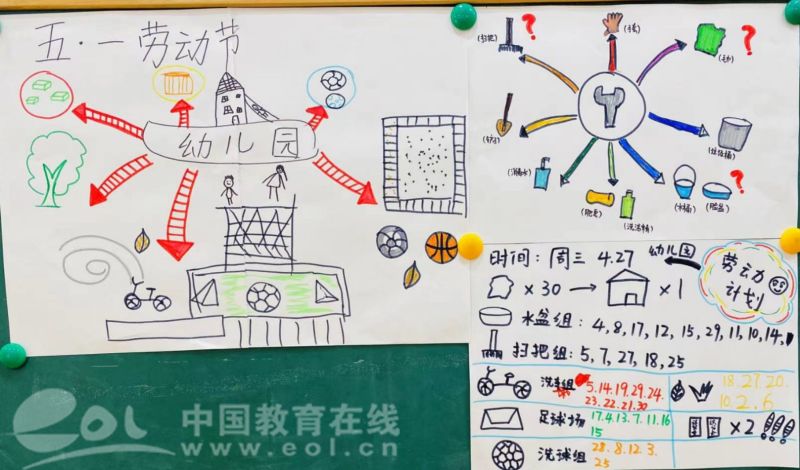 五·一劳动节
幼儿园
(扫把)
?
(手套)
?
(铲子)
(垃圾桶)
(消毒水)
(肥皂)
(洗洁精)
(水桶)
(脸盆)
?
时间:周三 4.27
幼儿园
劳动
计划
×30 → ×1
水盆组:4,8,17,12,15,29,11,10,14,
扫把组:5,7,27,18,25
洗车组
5.14.19.29.24.
23.22.21.30
18.27.20.
10.2.6
足球场
17.4.13.7.11.16
15
×2
洗球组
28.8.12.3.
25
eol 中国教育在线
www.eol.cn